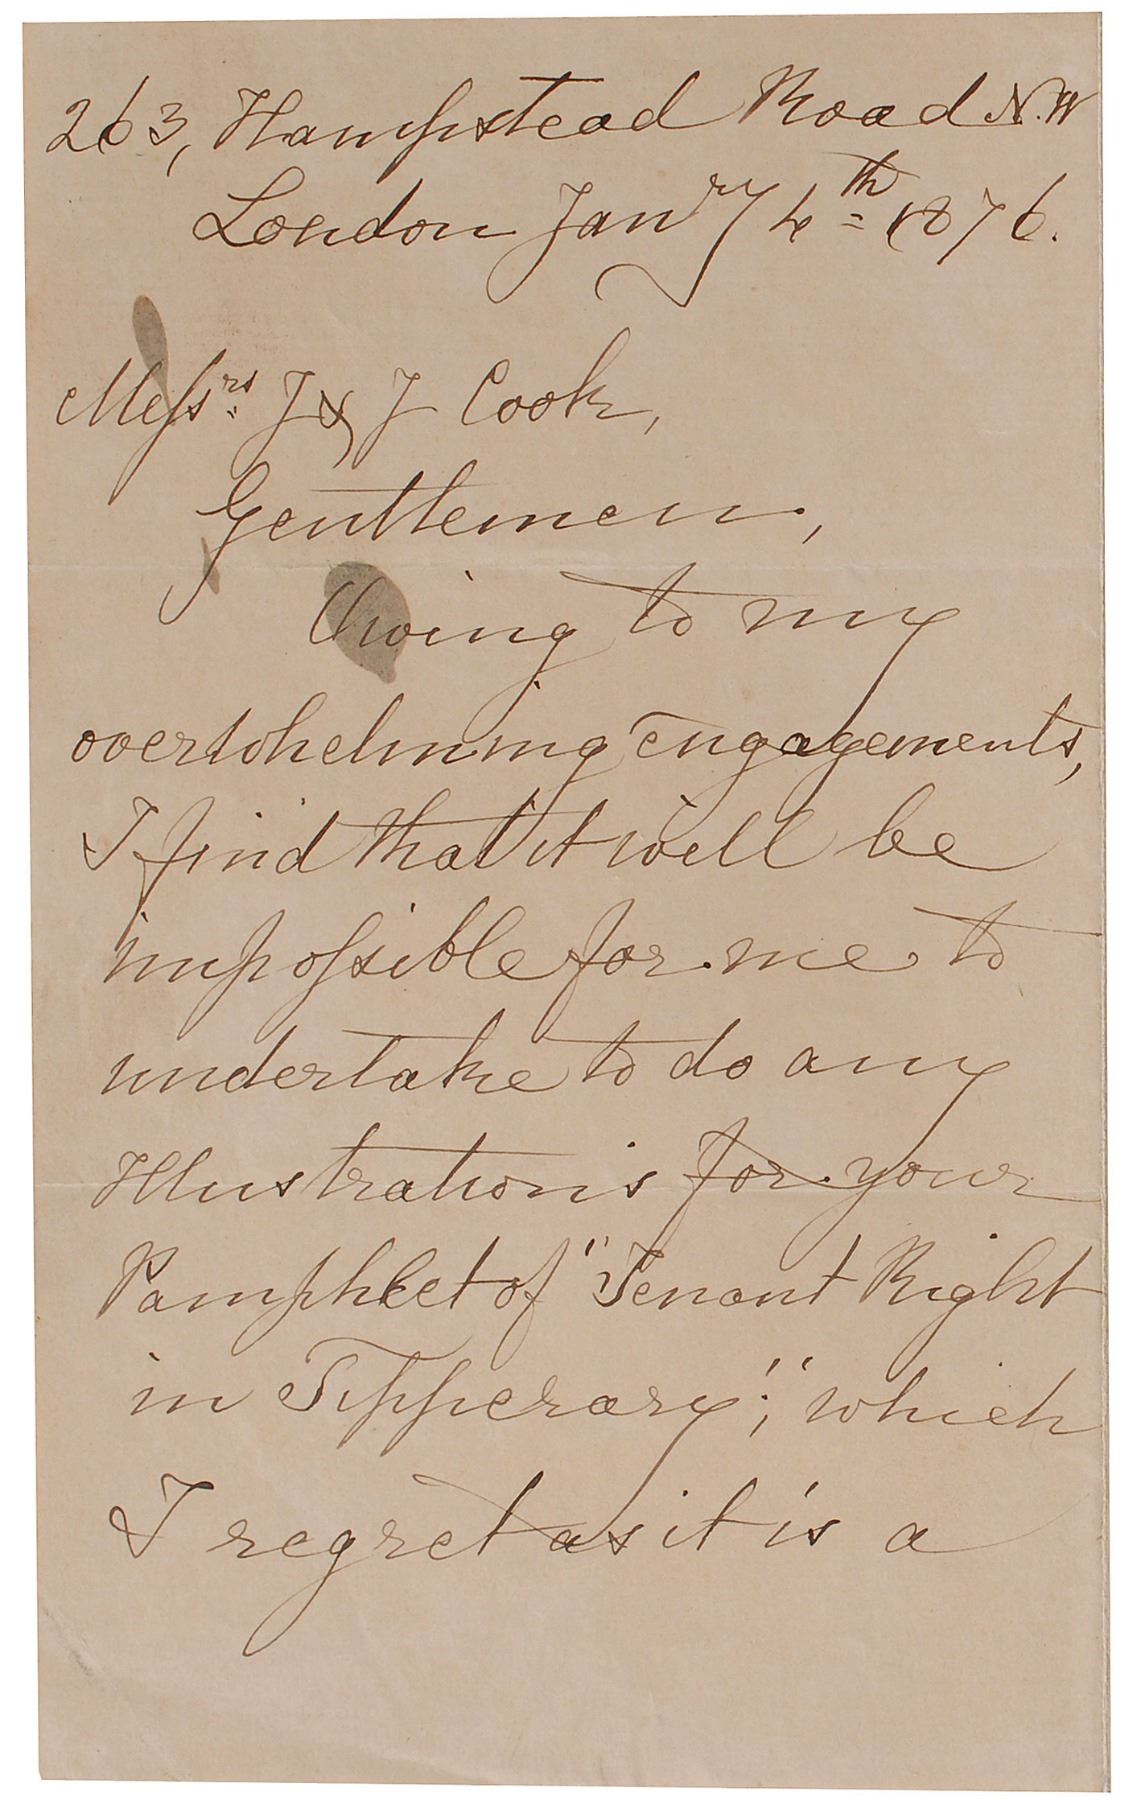 263, Hampstead Road N.W
London Jan^ry 4^th 1876.
Mess^rs J & J Cook,
Gentlemen,
Owing to my
overwhelming engagements,
I find that it will be
impossible for me to
undertake to do any
Illustrations for your
Pamphlet of "Tenant Right
in Tipperary"; which
I regret as it is a